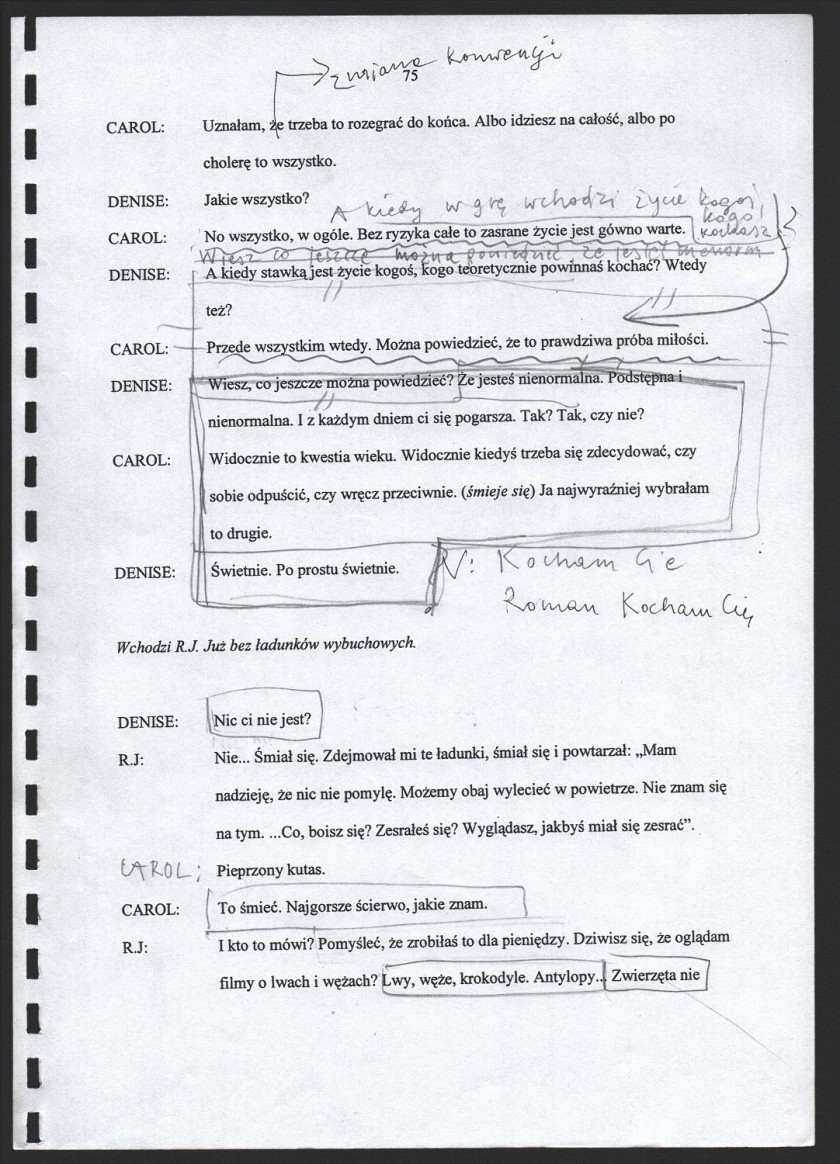 zmiana konwencji
75
CAROL: Uznałam, że trzeba to rozegrać do końca. Albo idziesz na całość, albo po
cholerę to wszystko.
DENISE: Jakie wszystko?
A kiedy w grę wchodzi życie kogoś,
kogo
kochasz
CAROL: No wszystko, w ogóle. Bez ryzyka całe to zasrane życie jest gówno warte.
Wiesz co jeszcze można powiedzieć że jesteś nienorm
DENISE: A kiedy stawką jest życie kogoś, kogo teoretycznie powinnaś kochać? Wtedy
też?
CAROL: Przede wszystkim wtedy. Można powiedzieć, że to prawdziwa próba miłości.
DENISE: Wiesz, co jeszcze można powiedzieć? Że jesteś nienormalna. Podstępna i
nienormalna. I z każdym dniem ci się pogarsza. Tak? Tak, czy nie?
CAROL: Widocznie to kwestia wieku. Widocznie kiedyś trzeba się zdecydować, czy
sobie odpuścić, czy wręcz przeciwnie. (śmieje się) Ja najwyraźniej wybrałam
to drugie.
DENISE: Świetnie. Po prostu świetnie.
N: Kocham Cie
Roman Kocham Cię
Wchodzi R.J. Już bez ładunków wybuchowych.
DENISE: Nic ci nie jest?
R.J: Nie... Śmiał się. Zdejmował mi te ładunki, śmiał się i powtarzał: „Mam
nadzieję, że nic nie pomylę. Możemy obaj wylecieć w powietrze. Nie znam się
na tym. ...Co, boisz się? Zesrałeś się? Wyglądasz, jakbyś miał się zesrać”.
CAROL; Pieprzony kutas.
CAROL: To śmieć. Najgorsze ścierwo, jakie znam.
R.J: I kto to mówi? Pomyśleć, że zrobiłaś to dla pieniędzy. Dziwisz się, że oglądam
filmy o lwach i wężach? Lwy, węże, krokodyle. Antylopy... Zwierzęta nie